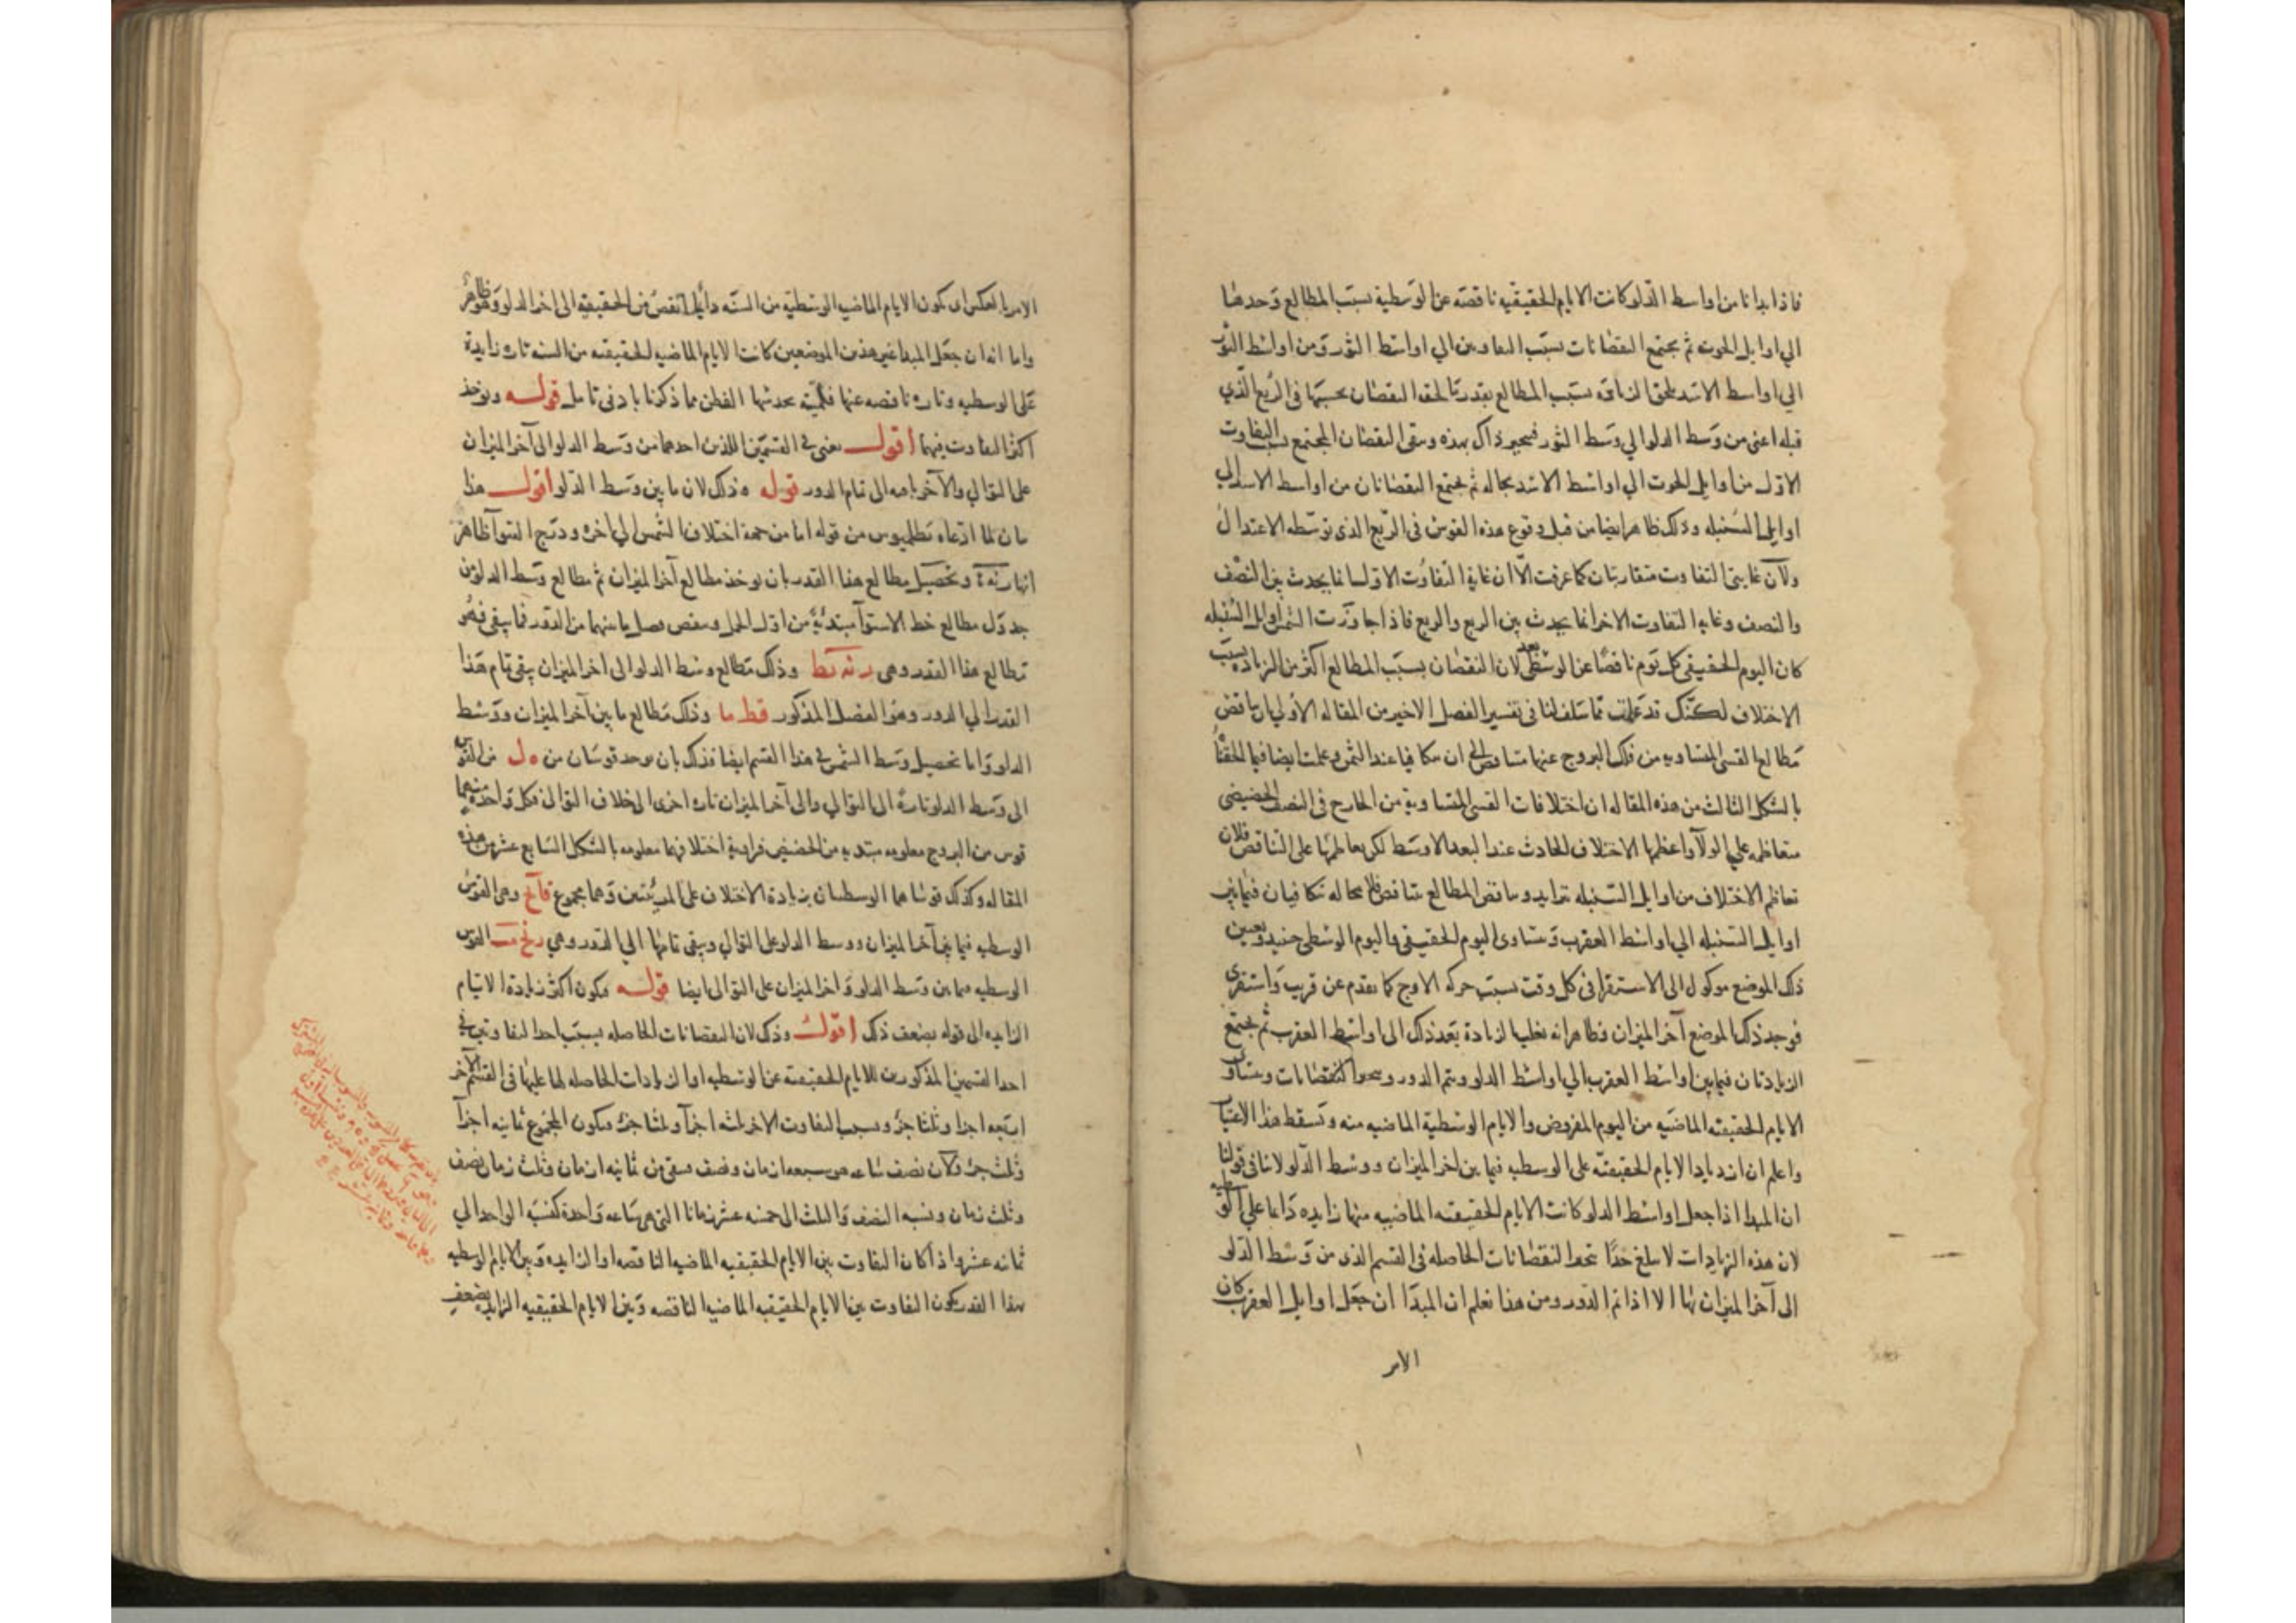 فاذا بدانا من اواسط الدلو كانت الايام الحقيقيه ناقصه عن الوسطية بسبب المطالع وحدها
الي اوايل الحوت ثم يجتمع النقصانات بسبب التفاوتين الي اواسط الثور ومن اواسط الثور
الي اواسط الاسد يلحق الزيادة بسبب المطالع بقدر ما لحقه النقصان بحسبها في الربع الذي
قبله اعني من وسط الدلو الي وسط الثور فيجبر ذاك بهذه ويبقى النقصان المجتمع بالتفاوت
الاول من اوايل الحوت الي اواسط الاسد بحاله ثم يجتمع النقصانان من اواسط الاسد الي
اوايل السنبله وذلك ظاهر ايضا من قبل وقوع هذه القوس في الربع الذي توسطه الاعتدال
ولان غايتي التفاوت متقاربتان كما عرفت الا ان غاية التفاوت الاول انما يحدث بين النصف
والنصف وغايه التفاوت الاخر انما يحدث بين الربع والربع فاذا جاوزت الشمس اوايل السنبله
كان اليوم الحقيقي كل يوم ناقصا عن الوسطي بعد لان النقصان بسبب المطالع اكثر من الزياده بسبب
الاختلاف لكنك قد علمت مما سلف لنا في تفسير الفصل الاخير من المقاله الاولي ان تناقص
مطالع القسي المتساويه من فلك البروج عنها متناقص الي ان يتكافيا عند الثمن وعلمت ايضا فيما الحقنا
بالشكل الثالث من هذه المقاله ان اختلافات القسي المتساوية من الخارج في النصف الحضيضي
متعاظمه علي الولآ واعظمها الاختلاف الحادث عند البعد الاوسط لكن تعاظمها على التناقص فلان
تعاظم الاختلاف من اوايل السنبله تتزايد وتناقص المطالع تتناقص فلا محاله تتكافيان فيما بين
اوايل السنبله الي اواسط العقرب وتساوي اليوم الحقيقي واليوم الوسطي حينيد وتعيين
ذلك الموضع موكول الى الاستقرا في كل وقت بسبب حركه الاوج كما تقدم عن قريب واستقري
فوجد ذلك الموضع آخر الميزان وظاهر انه تغلب الزيادة بعد ذلك الى اواسط العقرب ثم يجتمع
الزيادتان فيما بين اواسط العقرب الي اواسط الدلو ويتم الدور وينمحوا النقصانات ويتساوى
الايام الحقيقيه الماضيه من اليوم المفروض والايام الوسطية الماضيه منه وتسقط هذا الاعتبار
واعلم ان ازدياد الايام الحقيقيه على الوسطيه فيما بين اخر الميزان ووسط الدلو لا ينافي قولنا
ان المبدا اذا جعل اواسط الدلو كانت الايام الحقيقيه الماضيه منها زايده دايما علي الوسطيه
لان هذه الزيادات لا يبلغ حدا تمحوا النقصانات الحاصله في القسم الذي من وسط الدلو
الى آخر الميزان بها الا اذا تم الدور ومن هذا نعلم ان المبدا ان جعل اوايل العقرب كان
الامر
الامر بالعكس اي يكون الايام الماضيه الوسطيه من السنه دايما انقص من الحقيقية الى اخر الدلو وهو ظاهر
واما انه ان جعل المبدا غير هذين الموضعين كانت الايام الماضيه الحقيقيه من السنه تاره زايدة
على الوسطيه وتاره ناقصه عنها فلميته يحدسها الفطن مما ذكرنا بادنى تامل قوله ويوخذ
اكثر التفاوت فيهما اقول يعني في القسمين اللذين احدهما من وسط الدلو الى آخر الميزان
على التوالي والآخر منه الى تمام الدور قوله وذلك لان ما بين وسط الدلو اقول هذا
بيان لما ادعاه بطلميوس من قوله اما من جهة اختلاف الشمس الي اخره ودرج السوآ ظاهر
انها وتحصيل مطالع هذا القدر بان يوخذ مطالع آخر الميزان ثم مطالع وسط الدلو من
جدول مطالع خط الاستوآ مبتدئة من اول الحمل وينقص فصل ما بينهما من الدور فما يبقى فهو
مطالع هذا القدر وهي رنه كط وذلك مطالع وسط الدلو الى اخر الميزان يبقى تمام هذا
القدر الي الدور وهو الفضل المذكور قط ما وذلك مطالع ما بين آخر الميزان ووسط
الدلو واما تحصيل وسط الشمس في هذا القسم ايضا فذلك بان يوجد قوسان من ه ل من القوس
الى وسط الدلو تارة الى التوالي والى آخر الميزان تاره اخرى الى خلاف التوالي فكل واحدة منهما
قوس من البروج معلومه مبتديه من الحضيض فزاوية اختلافها معلومه بالشكل السابع عشر من هذه
المقاله وكذلك قوساهما الوسطيان بزيادة الاختلاف على المرئيتين وهما مجموع وهي القوس
الوسطيه فيما بين آخر الميزان ووسط الدلو على التوالي ويبقى تمامها الي الدور وهي القوس
الوسطيه فيما بين وسط الدلو واخر الميزان على التوالي ايضا قوله فيكون اكثر زيادة الايام
الزايده الى قوله بضعف ذلك اقول وذلك لان النقصانات الحاصله بسبب احد التفاوتين في
احد القسمين المذكورين للايام الحقيقيه عن الوسطيه او الزيادات الحاصله لها عليها في القسم الآخر
اربعه اجزا وثلثا جزؤ وبسبب التفاوت الاخر ثلثه اجزآ وثلثا جزء فيكون المجموع ثمانيه اجزآ
وثلث جزء ولان نصف ساعه هو سبعه ازمان ونصف فيبقى من ثمانيه ازمان وثلث زمان نصف
وثلث زمان ونسبه النصف والثلث الى خمسه عشر زمانا التي هي ساعه واحدة كنسبة الواحد الي
ثمانيه عشر واذا كان التفاوت بين الايام الحقيقيه الماضيه الناقصه او الزايده وبين الايام الوسطيه
بهذا القدر يكون التفاوت بين الايام الحقيقيه الماضيه الناقصه وبين الايام الحقيقيه الزايده بضعف